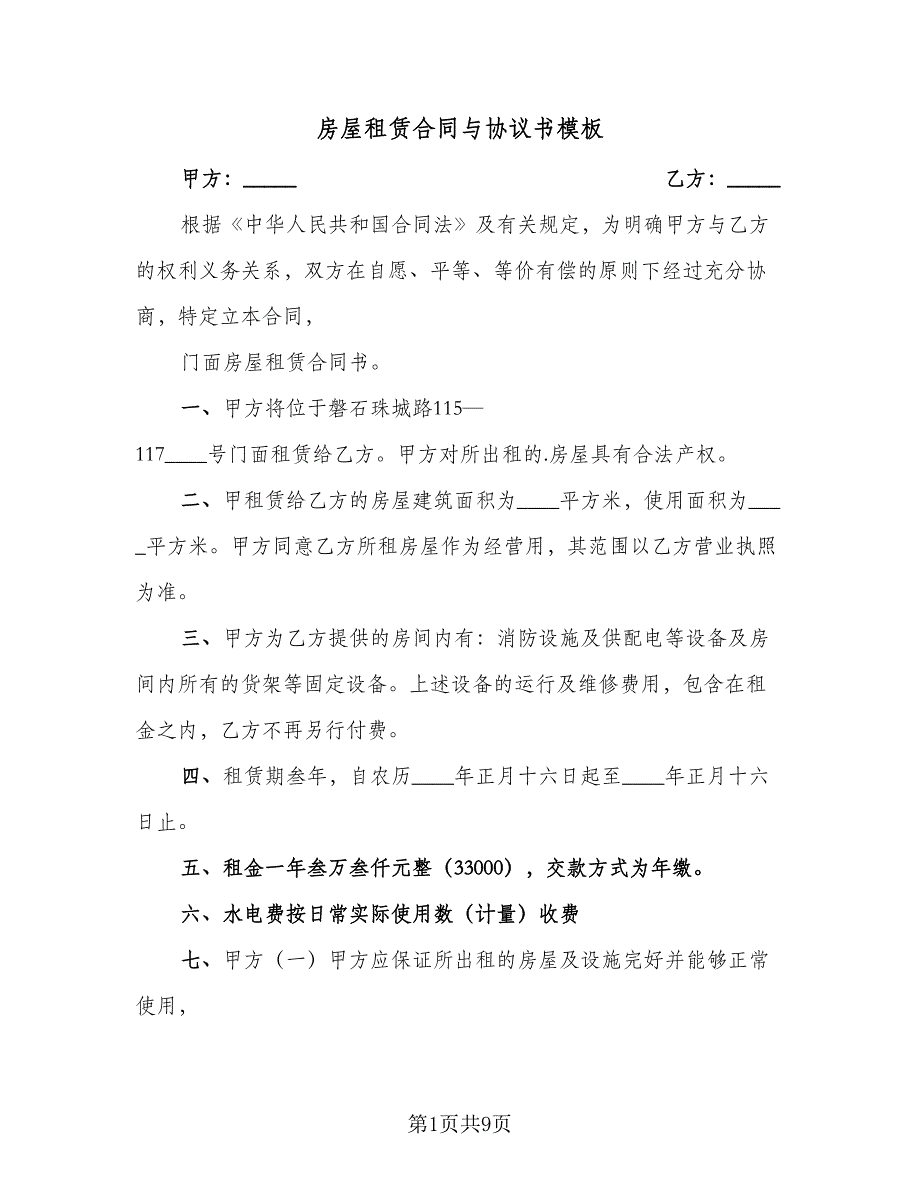 房屋租赁合同与协议书模板
甲方：_____ 乙方：_____
根据《中华人民共和国合同法》及有关规定，为明确甲方与乙方
的权利义务关系，双方在自愿、平等、等价有偿的原则下经过充分协
商，特定立本合同，
门面房屋租赁合同书。
一、甲方将位于磐石珠城路115—
117____号门面租赁给乙方。甲方对所出租的.房屋具有合法产权。
二、甲租赁给乙方的房屋建筑面积为____平方米，使用面积为___
_平方米。甲方同意乙方所租房屋作为经营用，其范围以乙方营业执照
为准。
三、甲方为乙方提供的房间内有：消防设施及供配电等设备及房
间内所有的货架等固定设备。上述设备的运行及维修费用，包含在租
金之内，乙方不再另行付费。
四、租赁期叁年，自农历____年正月十六日起至____年正月十六
日止。
五、租金一年叁万叁仟元整（33000），交款方式为年缴。
六、水电费按日常实际使用数（计量）收费
七、甲方（一）甲方应保证所出租的房屋及设施完好并能够正常
使用，
第1页共9页